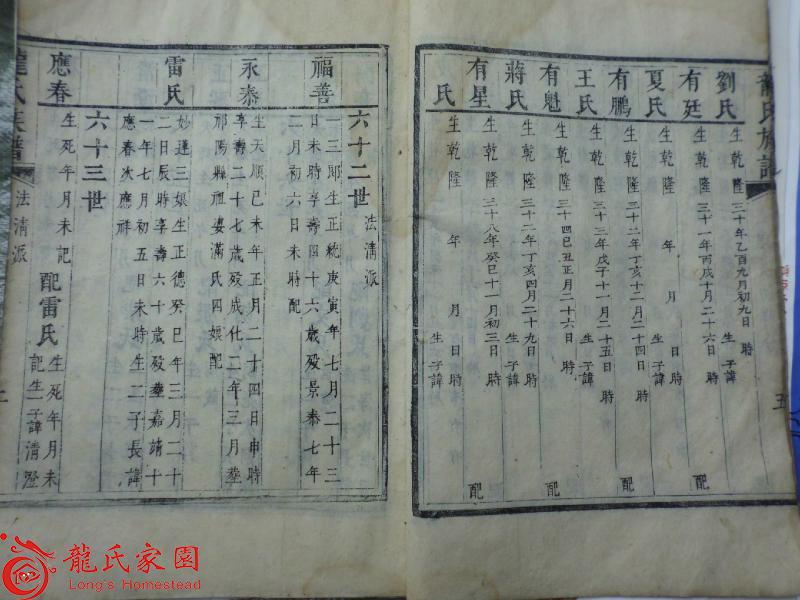 龍氏族譜
五
劉氏 生乾隆三十年乙酉九月初九日 時 生子諱
有廷 生乾隆三十一年丙戌十月二十六日 時 配
夏氏 生乾隆 年 月 日 時 生子諱
有鵬 生乾隆三十二年丁亥十二月二十四日 時 配
王氏 生乾隆三十三年戊子十一月二十五日 時 生子諱
有魁 生乾隆三十四己丑正月二十六日 時 配
蔣氏 生乾隆三十二年丁亥四月二十九日 時 生子諱
有星 生乾隆三十八年癸巳十一月初三日 時 配
氏 生乾隆 年 月 日 時 生子諱
六十二世 法清派
福善 一三郎生正統庚寅年七月二十三
日未時享壽四十六歲歿景泰七年
二月初六日未時配
永泰 生天順己未年正月二十四日申時
享壽二十七歲歿成化二年三月葬
祁陽縣祖婆滿氏四娘配
雷氏 妙蓮三娘生正德癸巳年三月二十
二日辰時享壽六十歲歿葬嘉靖十
一年七月初五日未時生二子長諱
應春次應祥
六十三世
應春 生死年月未記 配雷氏 生死年月未
記生一子諱清澄
龍氏族譜
法清派
龍氏家園
Long's Homestead